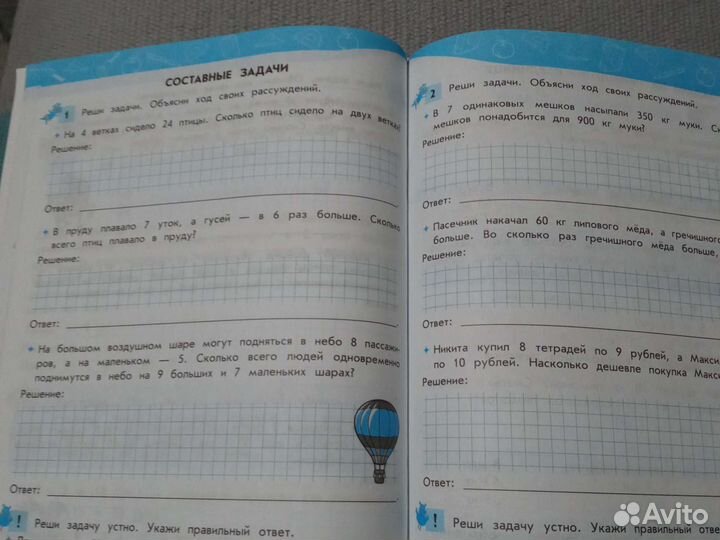 СОСТАВНЫЕ ЗАДАЧИ
1 Реши задачи. Объясни ход своих рассуждений.
На 4 ветках сидело 24 птицы. Сколько птиц сидело на двух ветках?
Решение:
Ответ:
В пруду плавало 7 уток, а гусей — в 6 раз больше. Сколько
всего птиц плавало в пруду?
Решение:
Ответ:
На большом воздушном шаре могут подняться в небо 8 пассажи-
ров, а на маленьком — 5. Сколько всего людей одновременно
поднимутся в небо на 9 больших и 7 маленьких шарах?
Решение:
Ответ:
! Реши задачу устно. Укажи правильный ответ.
2 Реши задачи. Объясни ход своих рассуждений.
В 7 одинаковых мешков насыпали 350 кг муки.
мешков понадобится для 900 кг муки?
Решение:
Ответ:
Пасечник накачал 60 кг липового мёда, а гречишного
больше. Во сколько раз гречишного мёда больше,
Решение:
Ответ:
Никита купил 8 тетрадей по 9 рублей, а
по 10 рублей. Насколько дешевле покупка
Решение:
Ответ:
! Реши задачу устно. Укажи правильный
Avito